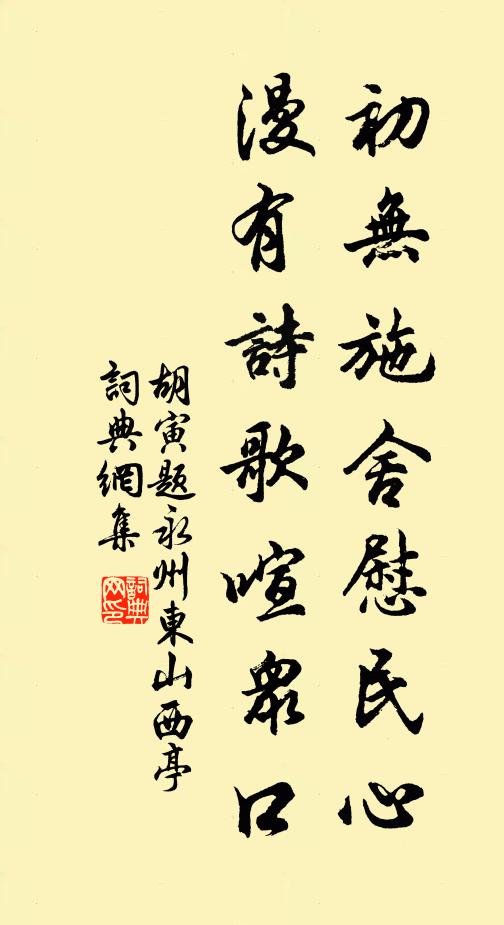 初無施舍慰民心
漫有詩歌喧衆口
胡寅題永州東山西亭
詞典網集
詞典
网印